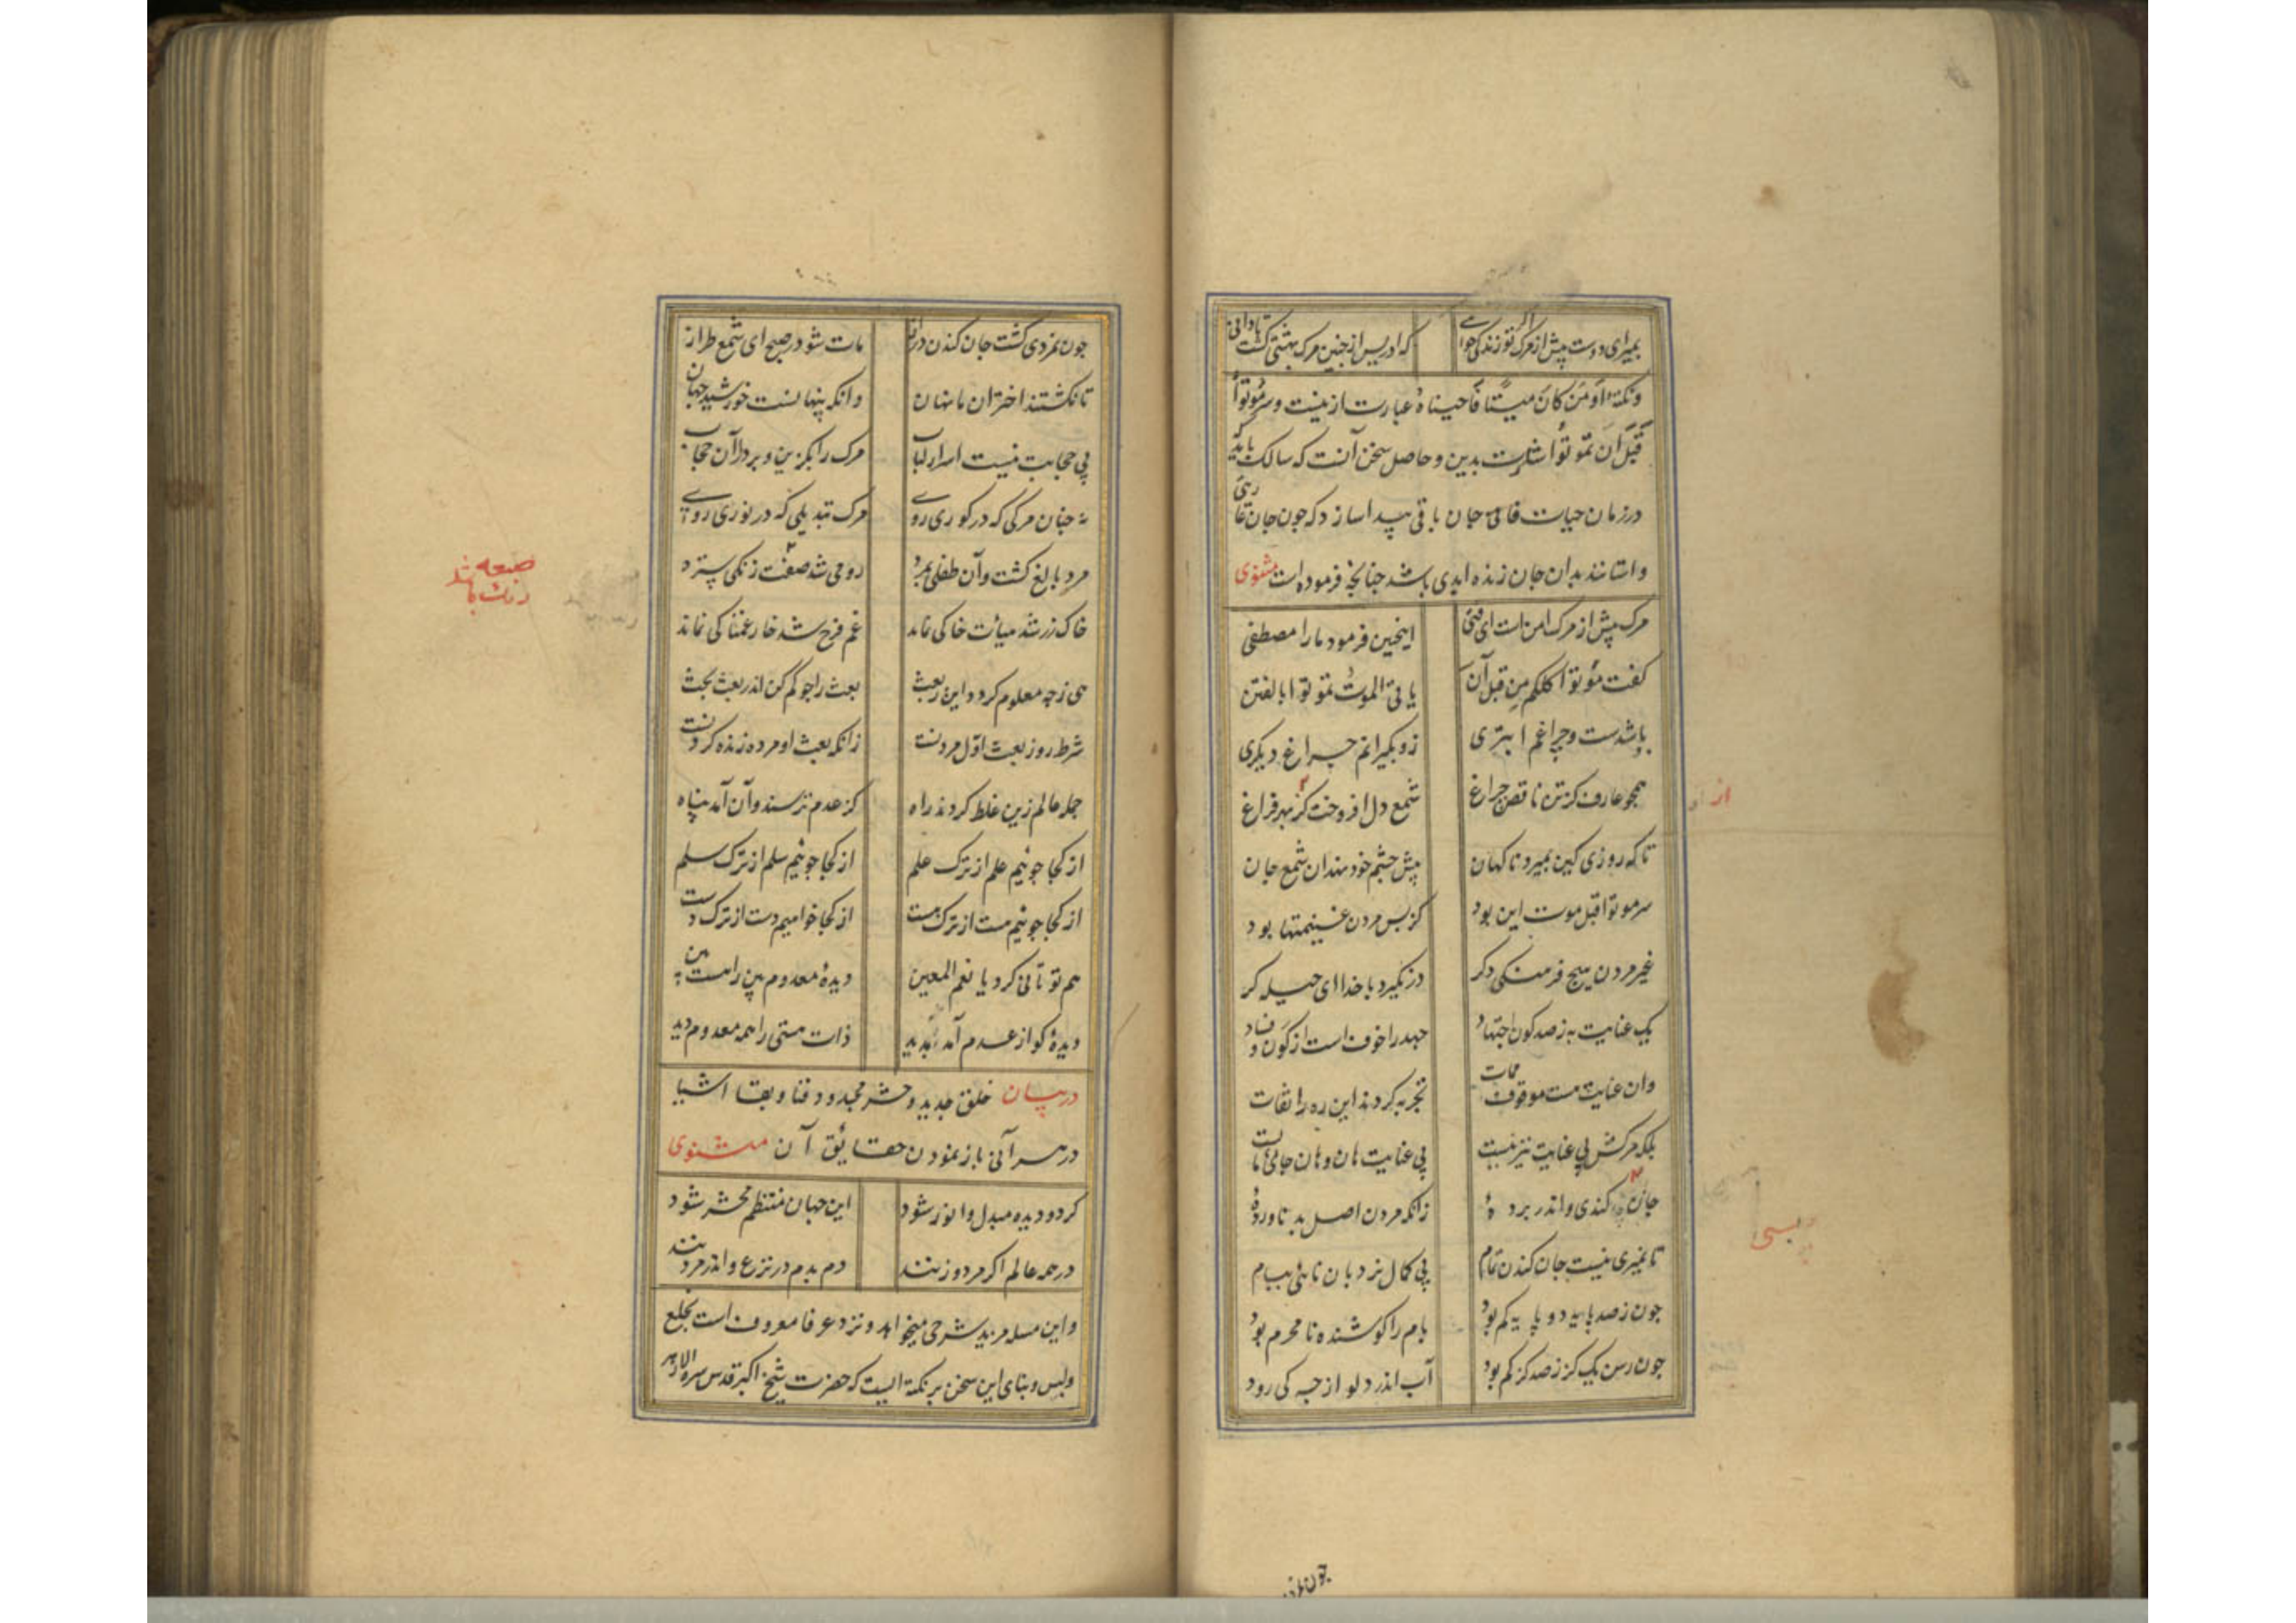 بمیر ای دوست پیش از مرگ اگر تو زندگی خواهی که ادریس از چنین مرگ بهشتی گشت تا دانی
ونکتهٔ اَوَمَن کانَ میتًا فَاَحییناهُ عبارت ازینست وسر مُوتُوا
قَبلَ اَن تَمُوتُوا اشارت بدین و حاصل سخن آنست که سالک باید که
در زمان حیات فانی جان باقی پیدا سازد که چون جان عاریتی
واستانند بدان جان زنده ابدی باشد چنانچه فرموده است مثنوی
مرک پیش از مرک امن است ای فتی اینچنین فرمود مارا مصطفی
کفت موتوا کلکم من قبل آن یاتی الموت تموتوا بالفتن
باشدست و چراغم ابتری زو بکیرانم چراغ دیکری
همچو عارف کز تن ناقص چراغ شمع دل افروخت کز بهر فراغ
تا که روزی کین بمیرد ناکهان پیش چشم خود نهد آن شمع جان
سر موتوا قبل موت این بود کز پس مردن غنیمتها بود
غیر مردن هیچ فرهنکی دکر درنکیرد با خدا ای حیله کر
یک عنایت به ز صد کون اجتهاد جهد را خوف است از کون و فساد
وان عنایت هست موقوف ممات تجربه کردند این ره را ثقات
بلکه مرکش بی عنایت نیز نیست بی عنایت هان وهان جایی مایست
جان کندی واندر پردهٔ زانکه مردن اصل بد ناوردهٔ
تا نمیری نیست جان کندن تمام بی کمال نردبان نایی ببام
چون ز صد پایه دو پایه کم بود بام را کوشنده نامحرم بود
چون رسن یک کز ز صد کز کم بود آب اندر دلو از چه کی رود
از
چون نمردی
چون نمردی کشت جان کندن دراز مات شو در صبح ای شمع طراز
تا نکشتند اختران ما نهان دانکه پنهانست خورشید جهان
بی حجابت نیست اسرار لباب مرک را بکزین و بردار آن حجاب
نه چنان مرکی که در کوری روی مرک تبدیلی که در نوری روی
مرد بالغ کشت و آن طفلی بمرد رومی شد صفت زنکی سترد
خاک زر شد هیات خاکی نماند غم فرح شد خار غمناکی نماند
هی ز چه معلوم کردد این ز بعث بعث را جو کم کن اندر بعث بحث
شرط روز بعث اوّل مردنست زانکه بعث او مرده زنده کردنست
جمله عالم زین غلط کردند راه کز عدم ترسند وآن آمد پناه
از کجا جوئیم علم از ترک علم از کجا جوئیم سلم از ترک سلم
از کجا جوئیم هست از ترک هست از کجا خواهیم دست از ترک دست
هم تو تانی کرد یا نعم المعین دیدهٔ معدوم بین را هست بین
دیدهٔ کو از عدم آمد پدید ذات هستی را همه معدوم دید
در بیان خلق جدید و حشر مجدد و فنا و بقا اشیا
در هر آنی باز نمودن حقایق آن مثنوی
این جهان منتظم محشر شود کر دو دیده مبدل و انور شود
در همه عالم اکر مرد و زنند دم بدم در نزع و اندر مردنند
و این مسله مزید شرحی میخواهد و نزد عرفا معروف است بخلع
ولبس و بنای این سخن بر نکتهٔ ایست که حضرت شیخ اکبر قدس سره الاطهر